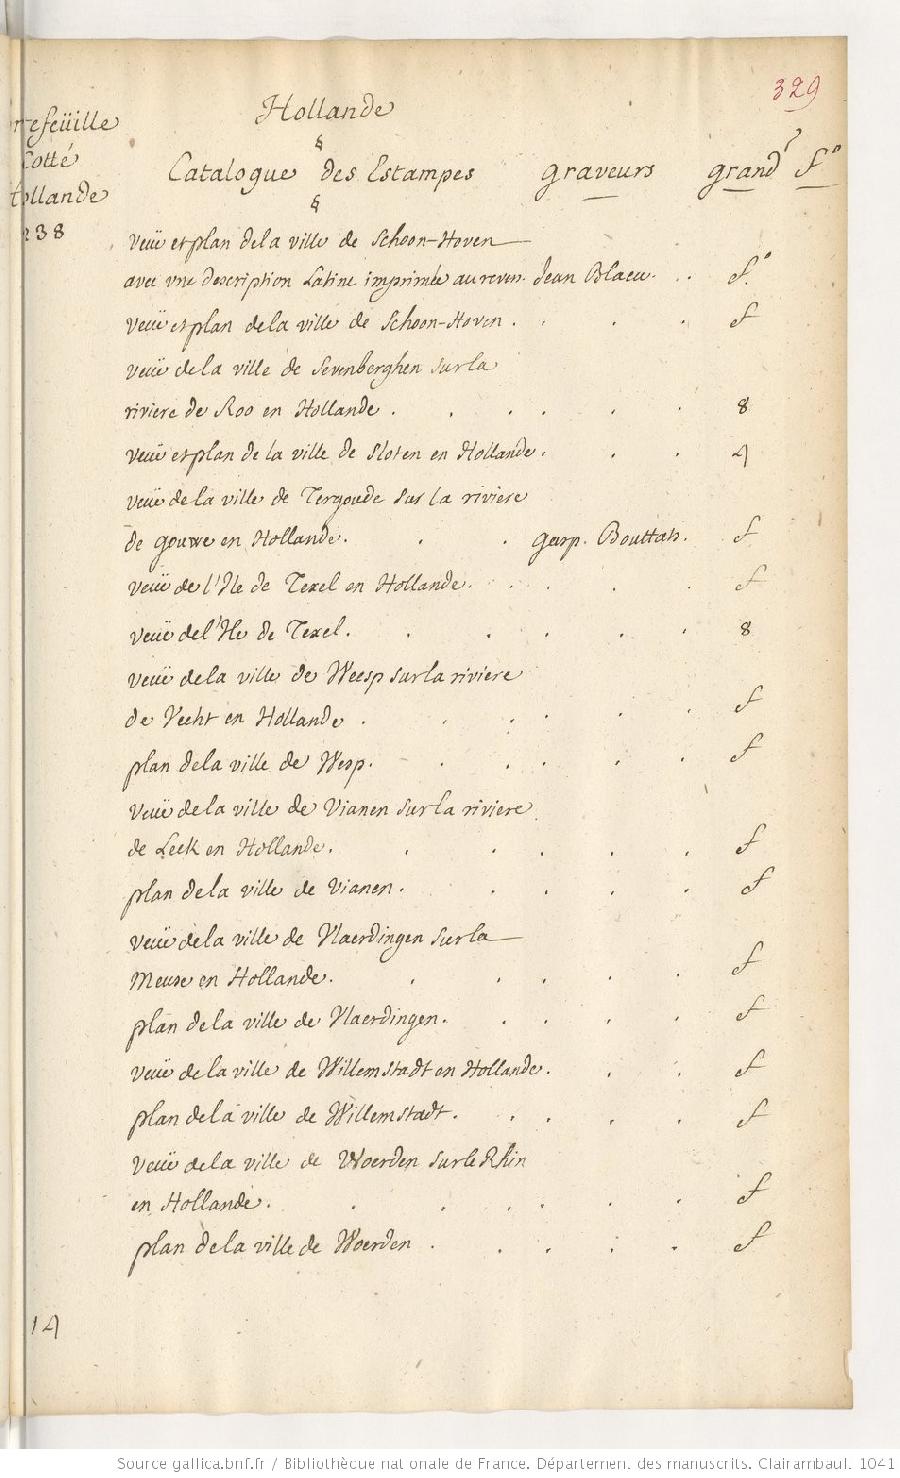 329
Hollande
refeüille
Cotté
hollande
238
Catalogue des Estampes graveurs grandr fo
veüe et plan de la ville de Schoon-Hoven
avec vne description Latine imprimée au revers. Jean Blaeu. fo
veüe et plan de la ville de Schoon-Hoven. f
veüe de la ville de Sevenberghen sur la
riviere de Roo en Hollande. 8
veüe et plan de la ville de Sloten en Hollande. 4
veüe de la ville de Tergoude sur la riviere
de gouwe en Hollande. gasp. Bouttats. f
veüe de l'Ile de Texel en Hollande. f
veüe de l'Ile de Texel. 8
veüe de la ville de Weesp sur la riviere
de Vecht en Hollande. f
plan de la ville de Wesp. f
veüe de la ville de Vianen sur la riviere
de Leck en Hollande. f
plan de la ville de Vianen. f
veüe de la ville de Vlaerdingen sur la
Meuse en Hollande. f
plan de la ville de Vlaerdingen. f
veüe de la ville de Willemstadt en Hollande. f
plan de la ville de Willemstadt. f
veüe de la ville de Woerden sur le Rhin
en Hollande. f
plan de la ville de Woerden. f
14
Source gallica.bnf.fr / Bibliothèque nationale de France. Département des manuscrits. Clairambault. 1041